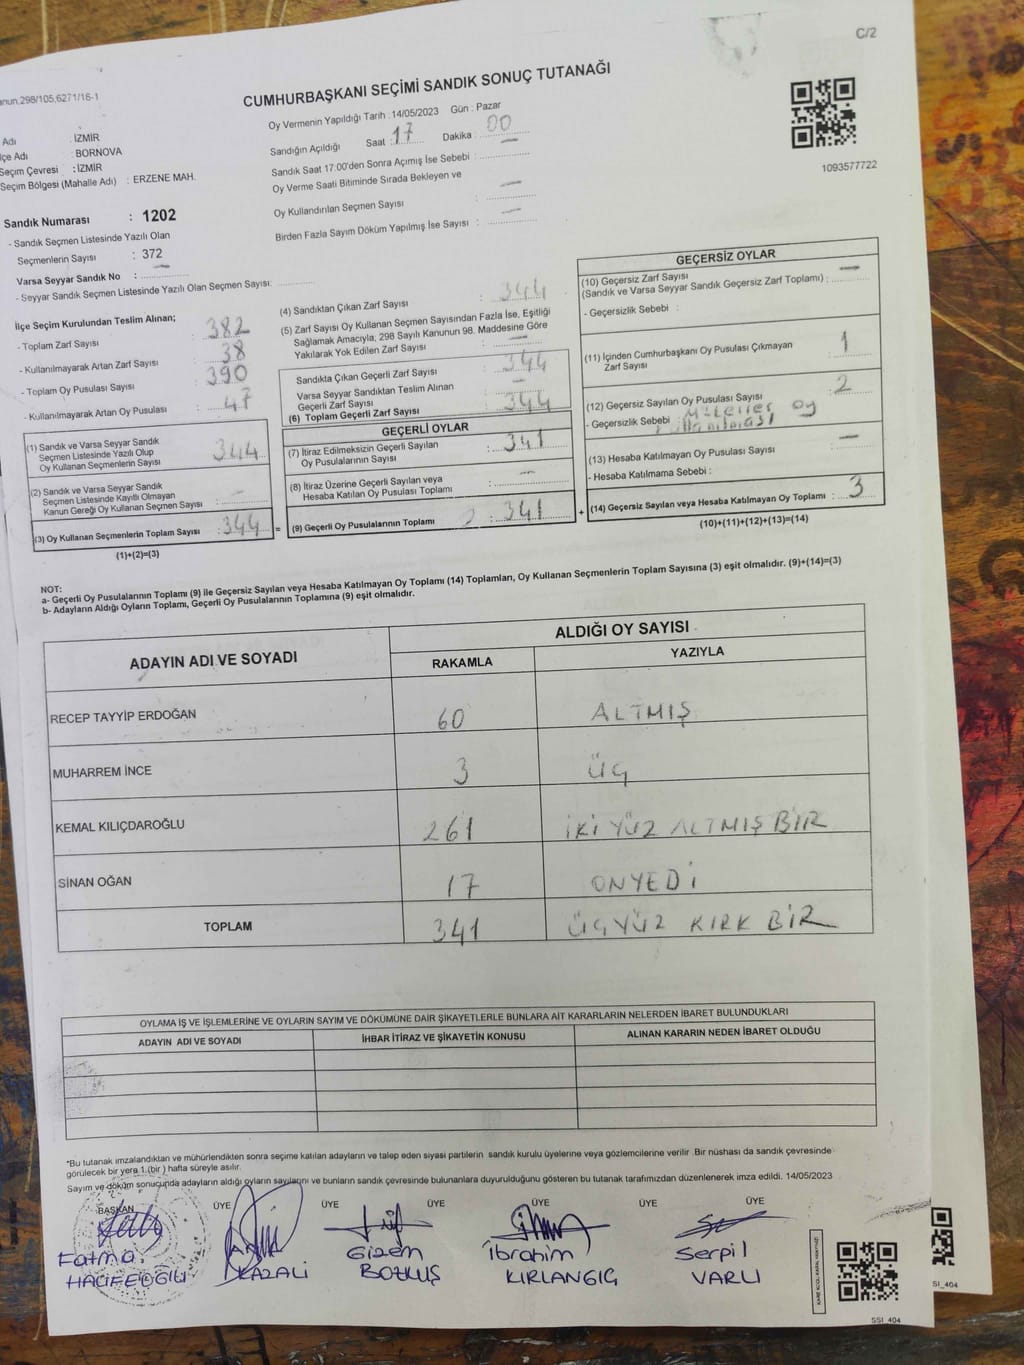 C/2
CUMHURBAŞKANI SEÇİMİ SANDIK SONUÇ TUTANAĞI
Oy Vermenin Yapıldığı Tarih :14/05/2023 Gün : Pazar
Sandığın Açıldığı Saat : 17 Dakika : 00
Sandık Saat 17.00'den Sonra Açımış İse Sebebi :
Oy Verme Saati Bitiminde Sırada Bekleyen ve
Oy Kullandırılan Seçmen Sayısı : —
Birden Fazla Sayım Döküm Yapılmış İse Sayısı : —
1093577722
298/105,6271/16-1
Adı : İZMİR
Adı : BORNOVA
Seçim Çevresi : İZMİR
Seçim Bölgesi (Mahalle Adı) : ERZENE MAH.
Sandık Numarası : 1202
- Sandık Seçmen Listesinde Yazılı Olan
Seçmenlerin Sayısı : 372
Varsa Seyyar Sandık No : —
- Seyyar Sandık Seçmen Listesinde Yazılı Olan Seçmen Sayısı:
İlçe Seçim Kurulundan Teslim Alınan;
- Toplam Zarf Sayısı : 382
- Kullanılmayarak Artan Zarf Sayısı : 38
- Toplam Oy Pusulası Sayısı : 390
- Kullanılmayarak Artan Oy Pusulası : 47
(1) Sandık ve Varsa Seyyar Sandık
Seçmen Listesinde Yazılı Olup
Oy Kullanan Seçmenlerin Sayısı : 344
(2) Sandık ve Varsa Seyyar Sandık
Seçmen Listesinde Kayıtlı Olmayan
Kanun Gereği Oy Kullanan Seçmen Sayısı : —
(3) Oy Kullanan Seçmenlerin Toplam Sayısı : 344 =
(1)+(2)=(3)
(4) Sandıktan Çıkan Zarf Sayısı : 344
(5) Zarf Sayısı Oy Kullanan Seçmen Sayısından Fazla İse, Eşitliği
Sağlamak Amacıyla; 298 Sayılı Kanunun 98. Maddesine Göre
Yakılarak Yok Edilen Zarf Sayısı : —
Sandıkta Çıkan Geçerli Zarf Sayısı : 344
Varsa Seyyar Sandıktan Teslim Alınan
Geçerli Zarf Sayısı : —
(6) Toplam Geçerli Zarf Sayısı : 344
GEÇERLİ OYLAR
(7) İtiraz Edilmeksizin Geçerli Sayılan
Oy Pusulalarının Sayısı : 341
(8) İtiraz Üzerine Geçerli Sayılan veya
Hesaba Katılan Oy Pusulası Toplamı : —
(9) Geçerli Oy Pusulalarının Toplamı : 341 +
GEÇERSİZ OYLAR
(10) Geçersiz Zarf Sayısı
(Sandık ve Varsa Seyyar Sandık Geçersiz Zarf Toplamı) : —
- Geçersizlik Sebebi :
(11) İçinden Cumhurbaşkanı Oy Pusulası Çıkmayan
Zarf Sayısı : 1
(12) Geçersiz Sayılan Oy Pusulası Sayısı : 2
- Geçersizlik Sebebi : oy
(13) Hesaba Katılmayan Oy Pusulası Sayısı : —
- Hesaba Katılmama Sebebi :
(14) Geçersiz Sayılan veya Hesaba Katılmayan Oy Toplamı : 3
(10)+(11)+(12)+(13)=(14)
NOT:
a- Geçerli Oy Pusulalarının Toplamı (9) ile Geçersiz Sayılan veya Hesaba Katılmayan Oy Toplamı (14) Toplamları, Oy Kullanan Seçmenlerin Toplam Sayısına (3) eşit olmalıdır. (9)+(14)=(3)
b- Adayların Aldığı Oyların Toplamı, Geçerli Oy Pusulalarının Toplamına (9) eşit olmalıdır.
ADAYIN ADI VE SOYADI ALDIĞI OY SAYISI
RAKAMLA YAZIYLA
RECEP TAYYİP ERDOĞAN 60 ALTMIŞ
MUHARREM İNCE 3 ÜÇ
KEMAL KILIÇDAROĞLU 261 İKİ YÜZ ALTMIŞ BİR
SİNAN OĞAN 17 ONYEDİ
TOPLAM 341 ÜÇYÜZ KIRK BİR
OYLAMA İŞ VE İŞLEMLERİNE VE OYLARIN SAYIM VE DÖKÜMÜNE DAİR ŞİKAYETLERLE BUNLARA AİT KARARLARIN NELERDEN İBARET BULUNDUKLARI
ADAYIN ADI VE SOYADI İHBAR İTİRAZ VE ŞİKAYETİN KONUSU ALINAN KARARIN NEDEN İBARET OLDUĞU
*Bu tutanak imzalandıktan ve mühürlendikten sonra seçime katılan adayların ve talep eden siyasi partilerin sandık kurulu üyelerine veya gözlemcilerine verilir .Bir nüshası da sandık çevresinde
görülecek bir yere 1.(bir ) hafta süreyle asılır.
Sayım ve döküm sonucunda adayların aldığı oyların sayılarını ve bunların sandık çevresinde bulunanlara duyurulduğunu gösteren bu tutanak tarafımızdan düzenlenerek imza edildi. 14/05/2023
BAŞKAN ÜYE ÜYE ÜYE ÜYE ÜYE ÜYE
Fatma Gizem İbrahim Serpil
KAZALI BOZKUŞ KIRLANGIÇ VARLI
SSI_404
SI_404